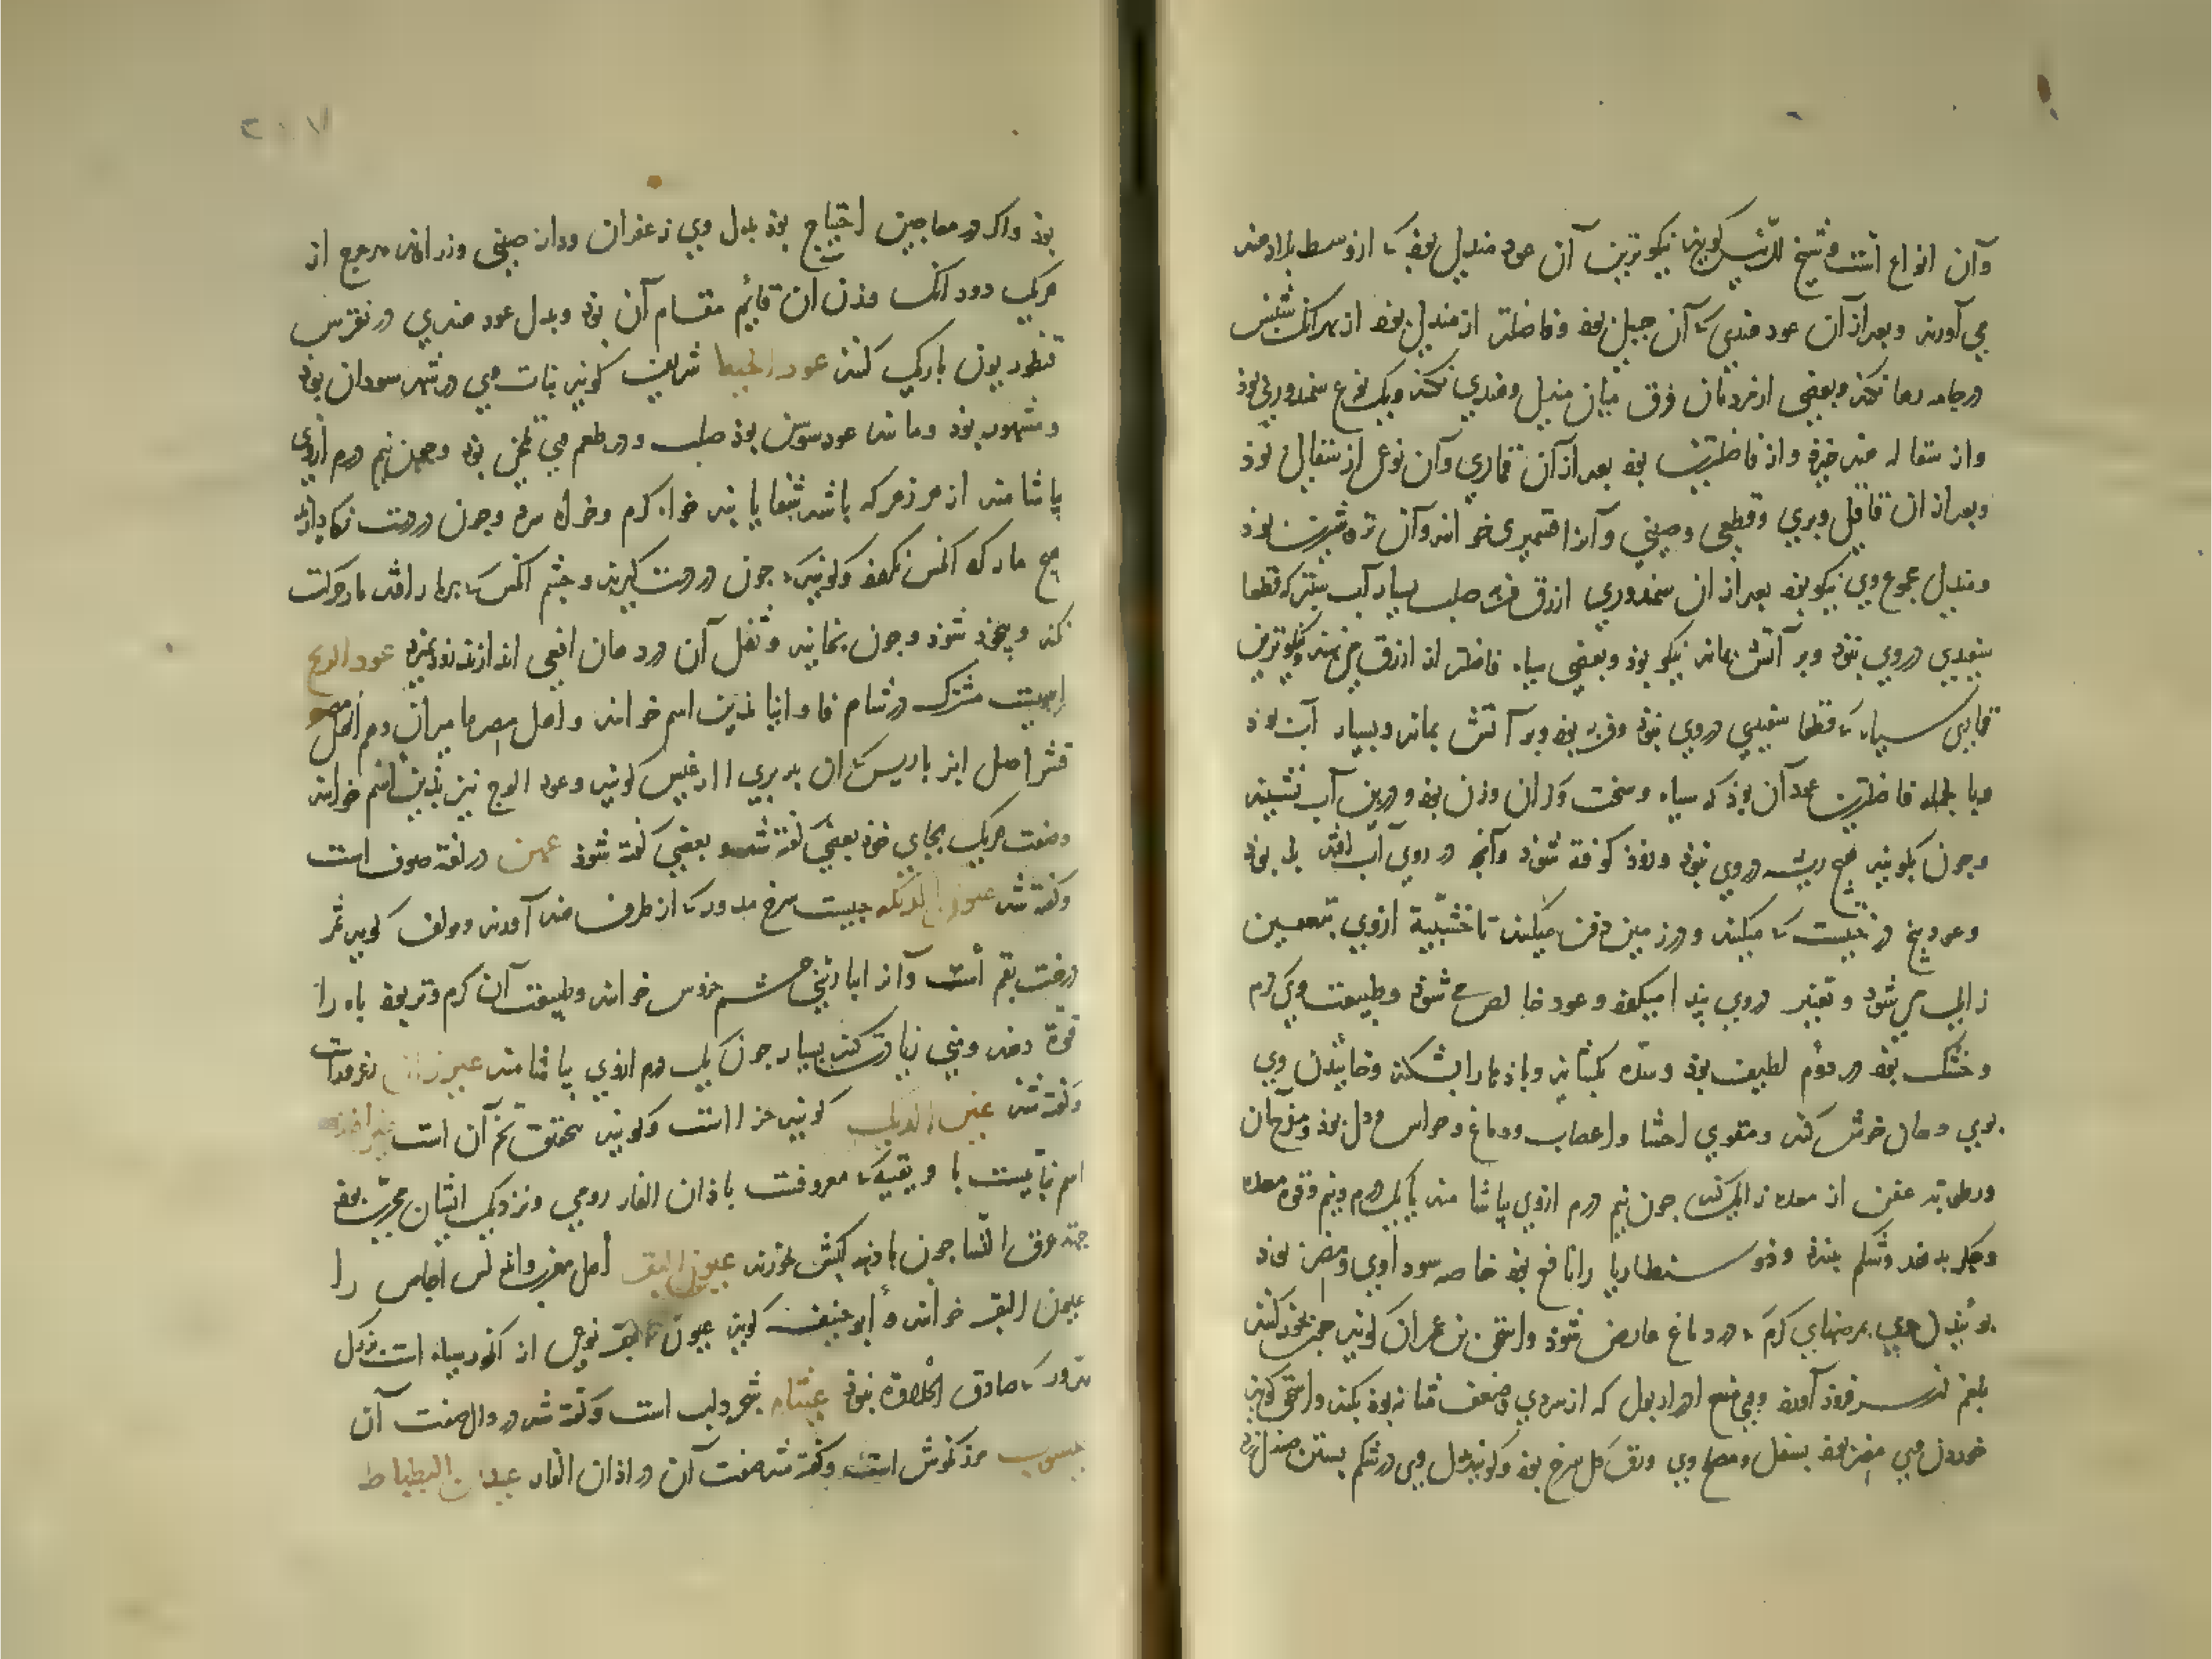 وآن انواع است و شیخ الرئیس کوید نیکوترین آن عود مندلی بود که از وسط بلاد هند
می آورند و بعد از آن عود هندی که آن جبلی بود و فاضلتر از مندلی بود از بهر آنک شپش
در جامه رها نکند و بعضی از مردمان فرق میان مندلی و هندی نکنند و یک نوع سمندوری بود
و از سفاله هند خیزد و از فاضلترین بود بعد از آن قماری و آن نوعی از سفالی بود
و بعد از ان قاقلی و بری و قطعی و صینی و آنرا قشمیری خوانند و آن تر و شیرین بود
و مندلی مجموع وی نیکو بود بعد از ان سمندوری ازرق فربه صلب بسیار آب ستبر که قطعا
سفیدی در وی نبود و بر آتش بماند نیکو بود و بعضی سیاه فاضلتر از ازرق می نهند و نیکوترین
قماری سیاه که قطعا سفیدی در وی نبود و فربه بود و بر آتش بماند و بسیار آب بود
و با لجمله فاضلترین عود آن بود که سیاه و سخت و کران وزن بود و در بن آب نشیند
و چون بکوبند هیچ ریشه در وی نبود و زود کوفته شود و آنچ در روی آب افتد بد بود
و عود بیخ درختیست که میکنند و در زمین دفن میکنند تا خشبیه از وی بتعفین
زایل می شود و تغیر در وی پیدا میکند و عود خالص می شود و طبیعت وی کرم
و خشک بود در دوم لطیف بود و سده بکشاید و بادها را بشکند و خائیدن وی
بوی دهان خوش کند و مقوی احشا و اعصاب و دماغ و حواس و دل بود و مفرح آن
و رطوبت عفن از معده زایل کند چون نیم درم از وی بیاشامند تا یک درم و نیم و قوه معده
و جکر بدهد و شکم ببندد و ذوسنطاریا را نافع بود خاصه سوداوی و مضر بود
بوئیدن وی بمرضهای کرم که در دماغ عارض شود و اسحق بن عمران کوید چون بخود کنند
بلغم از سر فرود آورد و وی منع ادرار بول که از سردی و ضعف مثانه بود بکند و اسحق کوید
خوردن وی مضر بود بسفل و مصلح وی ورق کل سرخ بود و کویند بدل وی در شکم بستن صندل زرد
بود و اکر در معاجین احتیاج بود بدل وی زعفران و دار صینی و زراوند مدحرج از
هر یک دو دانک وزن ان قایم مقام آن بود و بدل عود هندی در نقرس
قنطوریون باریک کنند عود الحیه شریف کوید نبات وی در شهر سودان بود
و مشهور بود و مانند عود سوس بود صلب و در طعم وی تلخی بود و چون نیم درم از وی
بیاشامند از هر زهر که باشد شفا یابند خواه کرم و خواه سرد و چون در دست نکاه دارند
هیچ مار که آنکس نکزد و کویند که چون در دست کیرند و چشم آنکس که بر مار افتد مار حرکت
نکند و بیخود شود و چون بخایند و تفل آن در دهان افعی اندازند زود بمیرد عود الریح
اسمیست مشترک در شام فاوانیا بدین اسم خوانند و اهل مصر مامیران و هم اهل مصر
قشر اصل انبرباریس که ان بربری اارغیس کویند و عود الوج نیز بدین اسم خوانند
و صفت هر یک بجای خود بعضی کفته شد و بعضی کفته شود عهن در لغة صوف است
و کفته شد عیون الدیکه حبیست سرخ مدور که از طرف هند آورند و مولف کوید ثمر
درخت بقم است و آنرا بپارسی چشم خروس خوانند و طبیعت آن کرم و تر بود باه را
قوة دهد و منی زیادت کند بسیار چون یک درم از وی بیاشامند
و کفته شد عین الدیک کویند و کویند محقق تخم آن است
اسم نباتیست با فریقیه که معروفست باذان الفار رومی و نزدیک ایشان مجرب بود
جهة عرق النسا چون با دنبه کبش بخورند عیون البقر اهل مغرب و اندلس اجاص را
عیون البقر خوانند و ابو حنیفه کوید عیون البقر نوعی از انکور سیاه است بزرک
مدور که صادق الحلاوة نبود عیثام شجر دلب است و کفته شد در دال صفت آن
عیسوب مرزنکوش است و کفته شد صفت آن در اذان الفار